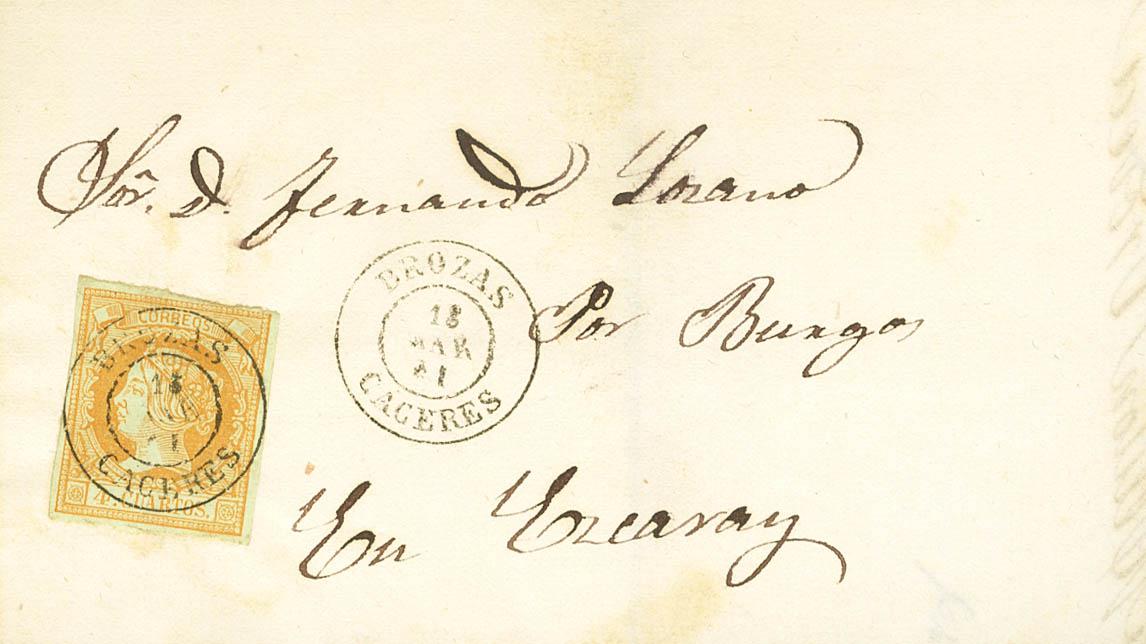 Sor. D. Fernando Lozano
BROZAS
18
MAR
61
CACERES
Por Burgos
CORREOS
BROZAS
18
CACERES
4 CUARTOS.
En Ezcaray